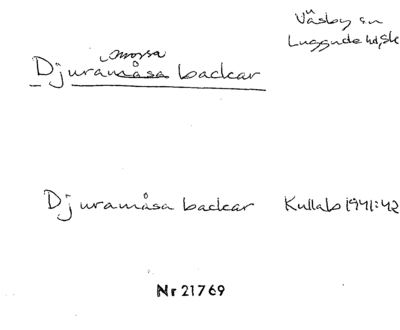 Väsby sn
Luggude hd, Sk
mossa
Djuramåsa backar
Djuramåsa backar Kullab 1941:42
Nr 21769